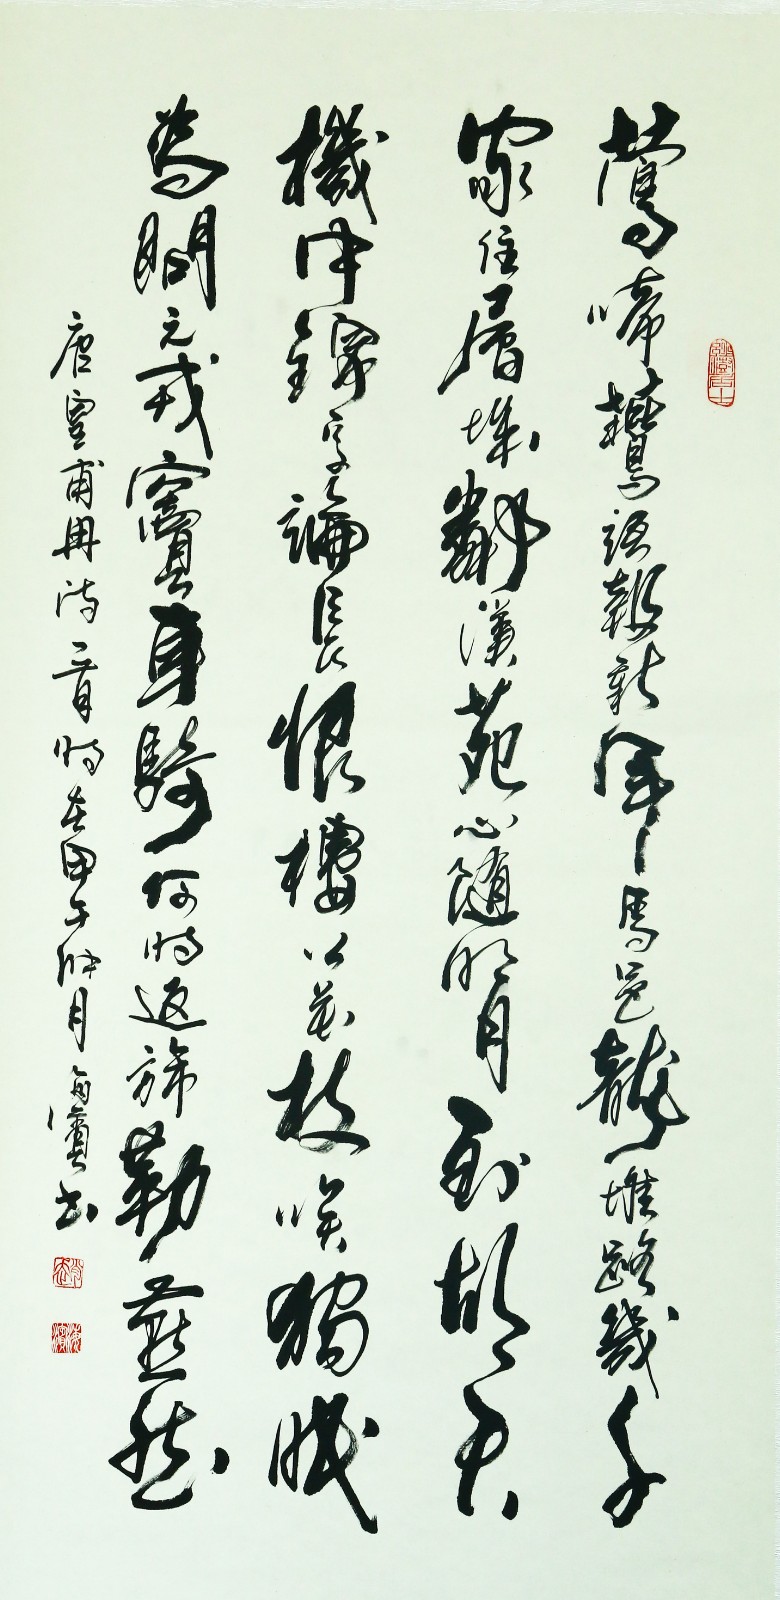 鶯啼鷰語報新年馬邑龍堆路幾千
家住層城鄰漢苑心随明月到胡天
機中錦字論長恨樓上花枝咲獨眠
為問元戎竇車騎何時返旆勒燕然
唐皇甫冉詩一首時在甲午秋月海濱书
海濱